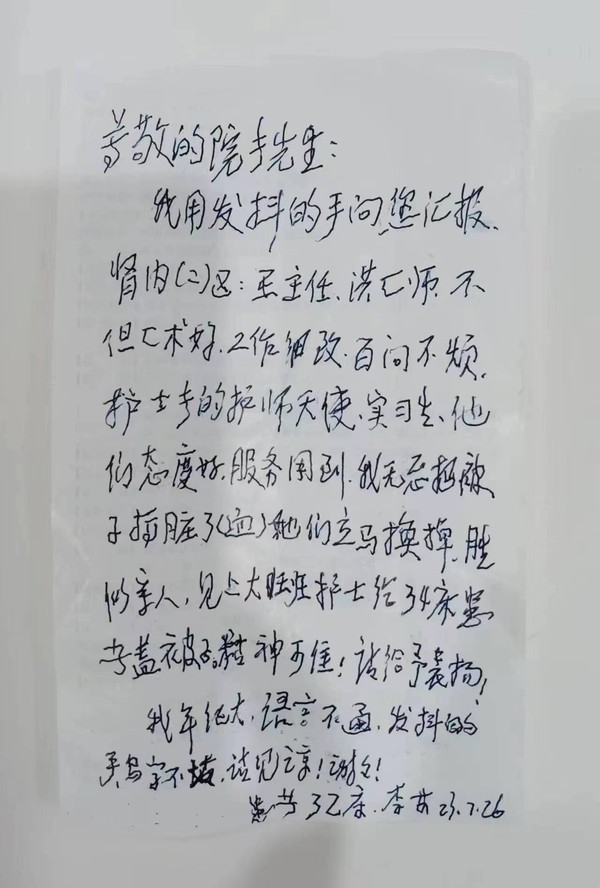 尊敬的院长先生:
我用发抖的手向您汇报、
肾内(二)区:王主任、洪亡师、不
但亡术好、工作细致、百问不烦、
护士长的护师天使、实习生、他
们态度好、服务周到、我无意把被
子搞脏了(血)她们立马换掉、胜
似亲人,见上大班护士给34床患
者盖被子,精神可佳!请给予表扬,
我年纪大,语言不通、发抖的
手,写字不好,请见谅!谢谢!
患者32床、李 23.7.26